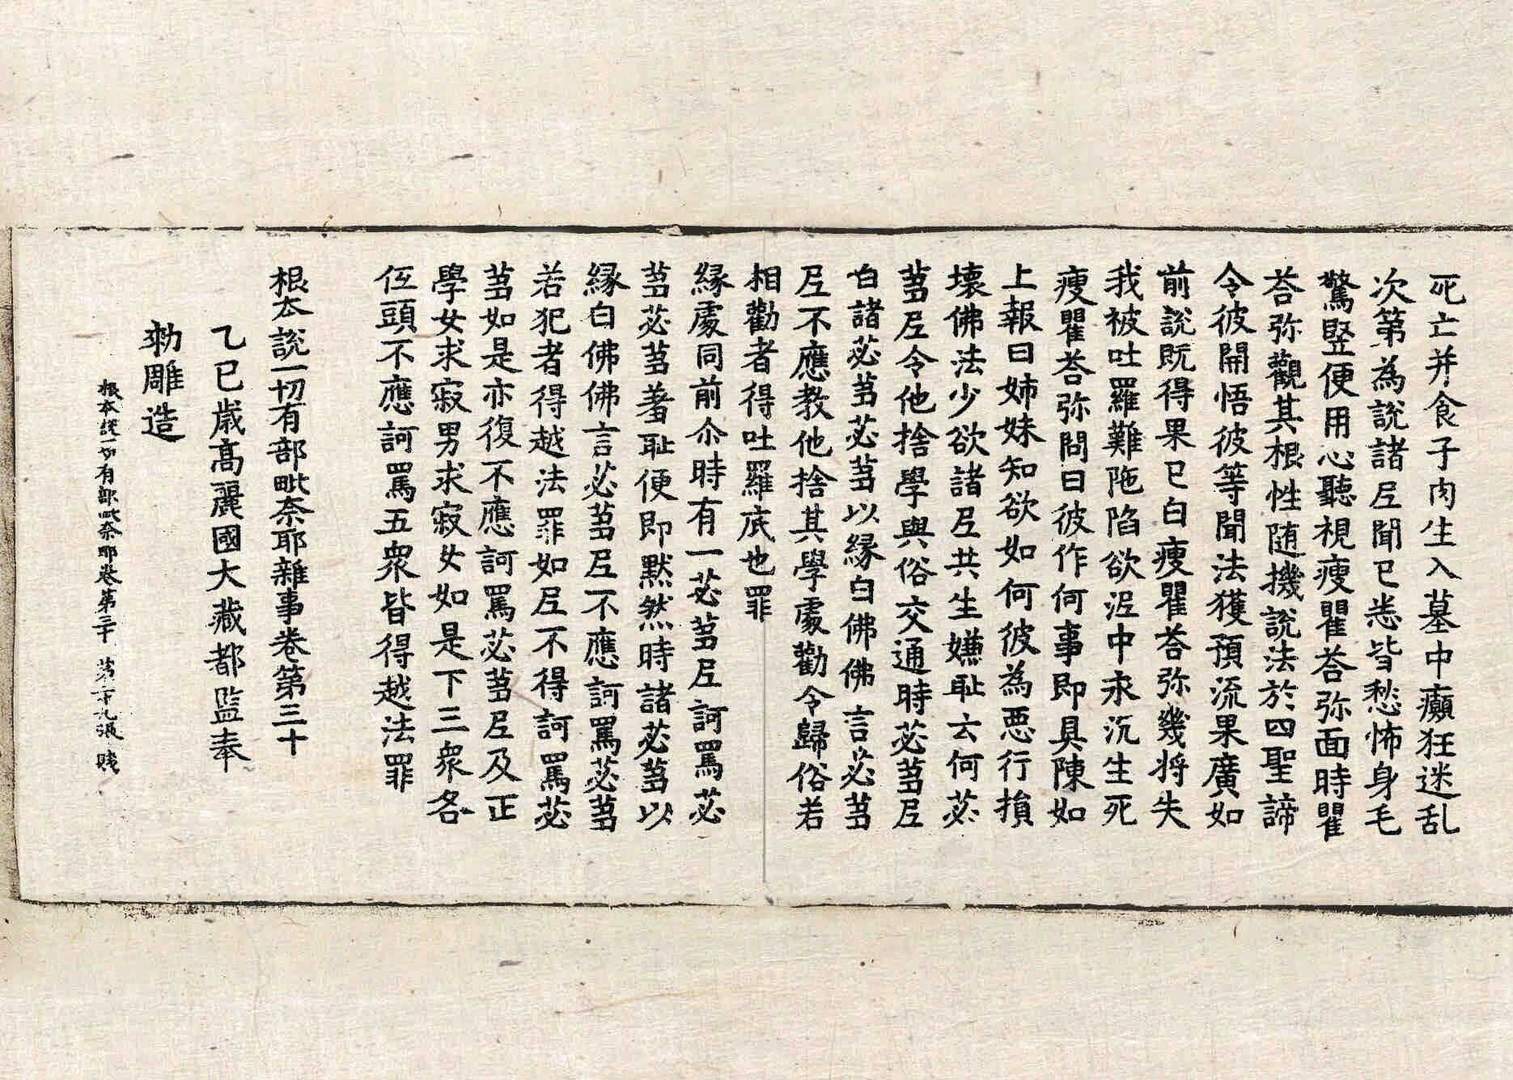 死亡并食子肉生入墓中癲狂迷乱
次第為說諸尼聞已悉皆愁怖身毛
驚竪便用心聽視瘦瞿荅弥面時瞿
荅弥觀其根性随機說法於四聖諦
令彼開悟彼等聞法獲預流果廣如
前說旣得果已白瘦瞿荅弥幾將失
我被吐羅難陁陷欲泥中永沉生死
瘦瞿荅弥問曰彼作何事即具陳如
上報曰姉妹知欲如何彼為惡行損
壞佛法少欲諸尼共生嫌恥云何苾
蒭尼令他捨學與俗交通時苾蒭尼
白諸苾蒭苾蒭以縁白佛佛言苾蒭
尼不應教他捨其學處勸令歸俗若
相勸者得吐羅底也罪
縁處同前尒時有一苾蒭尼訶罵苾
蒭苾蒭著恥便即默然時諸苾蒭以
縁白佛佛言苾蒭尼不應訶罵苾蒭
若犯者得越法罪如尼不得訶罵苾
蒭如是亦復不應訶罵苾蒭尼及正
學女求寂男求寂女如是下三衆各
伍頭不應訶罵五衆皆得越法罪
根夲說一切有部毗奈耶雜事卷第三十
乙巳歲高麗國大藏都監奉
勑雕造
根本說一切有部毗奈耶卷第三十 第十九張 賤